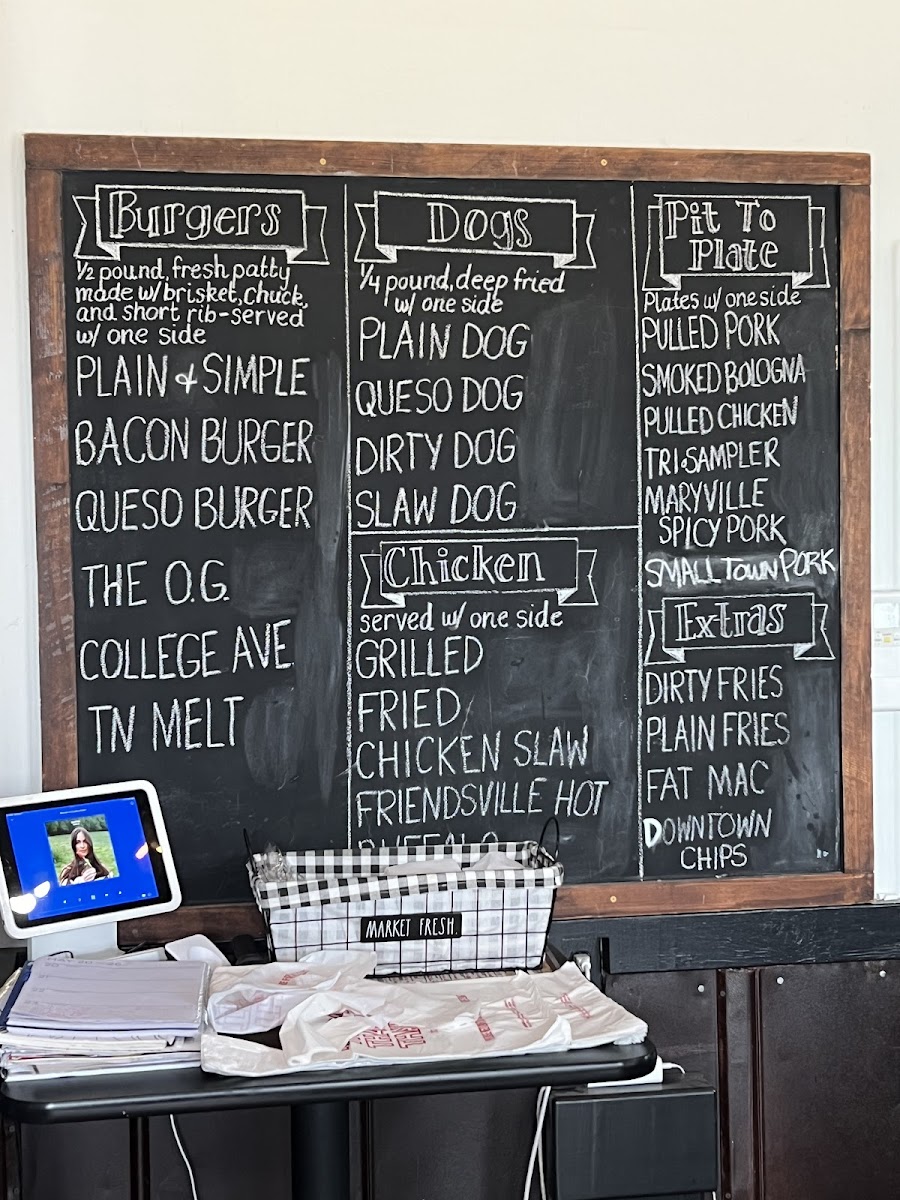 Burgers
1/2 pound, fresh patty
made w/brisket, chuck,
and short rib - served
w/ one side
PLAIN & SIMPLE
BACON BURGER
QUESO BURGER
THE O.G.
COLLEGE AVE.
TN MELT
Dogs
1/4 pound, deep fried
w/ one side
PLAIN DOG
QUESO DOG
DIRTY DOG
SLAW DOG
Chicken
served w/ one side
GRILLED
FRIED
CHICKEN SLAW
FRIENDSVILLE HOT
BUFFALO
Pit To
Plate
Plates w/ one side
PULLED PORK
SMOKED BOLOGNA
PULLED CHICKEN
TRI-SAMPLER
MARYVILLE
SPICY PORK
SMALL TOWN PORK
Extras
DIRTY FRIES
PLAIN FRIES
FAT MAC
DOWNTOWN
CHIPS
MARKET FRESH.